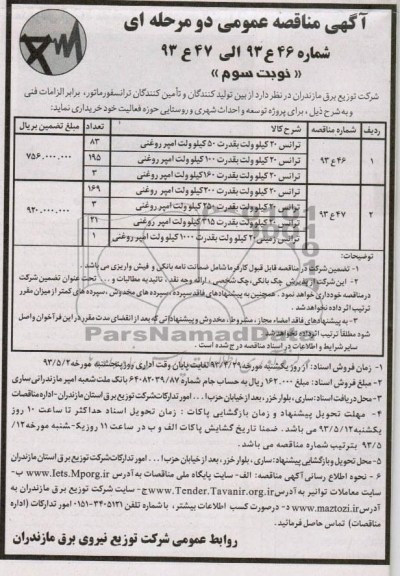 آگهی مناقصه عمومی دو مرحله ای
شماره ۴۶ ع ۹۳ الی ۴۷ ع ۹۳
« نوبت سوم »
شرکت توزیع برق مازندران در نظر دارد از بین تولید کنندگان و تأمین کنندگان ترانسفورماتور، برابر الزامات فنی
و به شرح ذیل، برای پروژه توسعه و احداث شهری و روستایی حوزه فعالیت خود خریداری نماید:
ردیف شماره مناقصه شرح کالا تعداد مبلغ تضمین بریال
۱ ۴۶ ع ۹۳ ترانس ۲۰ کیلو ولت بقدرت ۵۰ کیلو ولت امپر روغنی ۸۳ ۷۵۶.۰۰۰.۰۰۰
ترانس ۲۰ کیلو ولت بقدرت ۱۰۰ کیلو ولت امپر روغنی ۱۹۵
ترانس ۲۰ کیلو ولت بقدرت ۱۶۰ کیلو ولت امپر روغنی ۳
۲ ۴۷ ع ۹۳ ترانس ۲۰ کیلو ولت بقدرت ۲۰۰ کیلو ولت امپر روغنی ۱۶۹ ۹۲۰.۰۰۰.۰۰۰
ترانس ۲۰ کیلو ولت بقدرت ۲۵۰ کیلو ولت امپر روغنی ۳
ترانس ۲۰ کیلو ولت بقدرت ۳۱۵ کیلو ولت امپر روغنی ۲۱
ترانس زمینی ۲۰ کیلو ولت بقدرت ۱۰۰۰ کیلو ولت امپر روغنی ۱
توضیحات:
۱- تضمین شرکت در مناقصه قابل قبول کارفرما شامل ضمانت نامه بانکی و فیش واریزی می باشد.
۲- این شرکت از پذیرش چک بانکی، چک شخصی، ارائه وجه نقد، تائیدیه مطالبات و ... تحت عنوان تضمین شرکت
در مناقصه خودداری خواهد نمود. همچنین به پیشنهادهای فاقد سپرده، سپرده های مخدوش، سپرده های کمتر از میزان مقرر
ترتیب اثر داده نخواهد شد.
۳- به پیشنهادهای فاقد امضاء مجاز، مشروط، مخدوش و پیشنهاداتی که بعد از انقضای مدت مقرر در این فراخوان واصل
شود مطلقاً ترتیب اثر داده نخواهد شد.
سایر شرایط و اطلاعات در اسناد مناقصه درج شده است.
ParsNamadData
۱- زمان فروش اسناد: از روز یکشنبه مورخه ۹۳/۴/۲۹ لغایت پایان وقت اداری روز پنجشنبه مورخه ۹۳/۵/۲
۲- مبلغ فروش اسناد: ۱۶۲.۰۰۰ ریال به حساب جام شماره ۶۴۰۸۲۰۳۹/۸۷ بانک ملت شعبه امیر مازندرانی ساری
۳- محل دریافت اسناد: ساری، بلوار خزر، بعد از خیابان حزب ا... امور تدارکات شرکت توزیع برق استان مازندران - اداره مناقصات
۴- مهلت تحویل پیشنهاد و زمان بازگشایی پاکات : زمان تحویل اسناد حداکثر تا ساعت ۱۰ روز
یکشنبه ۹۳/۵/۱۲ می باشد. ضمنا تاریخ گشایش پاکات الف و ب در ساعت ۱۱ روز یکشنبه مورخه ۱۲/
۹۳/۵ بترتیب شماره مناقصه می باشد.
۵- محل تحویل و بازگشایی پیشنهاد: ساری، بلوار خزر، بعد از خیابان حزب ا... امور تدارکات شرکت توزیع برق استان مازندران
۶- نحوه اطلاع رسانی آگهی مناقصه: الف- سایت پایگاه ملی مناقصات به آدرس www.Iets.Mporg.ir ب-
سایت معاملات توانیر به آدرس www.Tender.Tavanir.org.ir ج- سایت شرکت توزیع برق مازندران به
آدرس www.maztozi.ir د- درصورت کسب اطلاعات بیشتر، با شماره تلفن ۳۴۰۵۱۲۱-۰۱۵۱ امور تدارکات (اداره
مناقصات) تماس حاصل فرمائید.
روابط عمومی شرکت توزیع نیروی برق مازندران